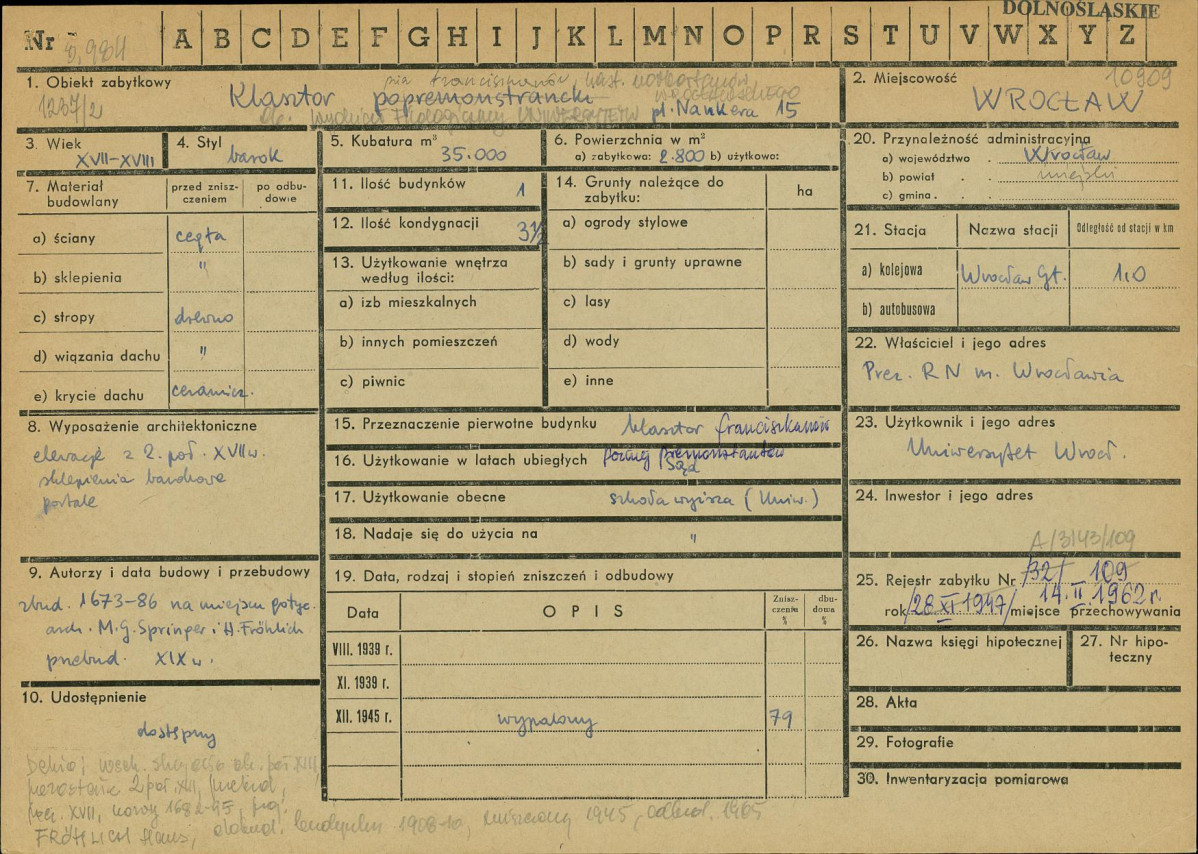 DOLNOŚLĄSKIE
Nr A B C D E F G H I J K L M N O P R S T U V W X Y Z
1. Obiekt zabytkowy
1237/2
Klasztor popremonstrancki
pl. Nankera 15
2. Miejscowość
10909
WROCŁAW
3. Wiek
XVII-XVIII
4. Styl
barok
5. Kubatura m³
35.000
6. Powierzchnia w m²
a) zabytkowa: 2.800 b) użytkowo:
7. Materiał budowlany
przed zniszczeniem
po odbudowie
a) ściany cegła
b) sklepienia "
c) stropy drewno
d) wiązania dachu "
e) krycie dachu ceramicz.
8. Wyposażenie architektoniczne
elewacje z 2. poł. XVII w.
sklepienia barokowe
portale
9. Autorzy i data budowy i przebudowy
zbud. 1673-86 na miejscu gotyc.
arch. M.G. Springer i H. Fröhlich
przebud. XIX w.
10. Udostępnienie
dostępny
poł. XIII,
2 poł. XVII,
XVII, nowy 1682-95, proj.
FRÖHLICH Hans, budynku 1908-10, zniszczony 1945, odbud. 1965
11. Ilość budynków 1
12. Ilość kondygnacji 3½
13. Użytkowanie wnętrza
według ilości:
a) izb mieszkalnych
b) innych pomieszczeń
c) piwnic
14. Grunty należące do
zabytku:
ha
a) ogrody stylowe
b) sady i grunty uprawne
c) lasy
d) wody
e) inne
15. Przeznaczenie pierwotne budynku klasztor franciszkanów
16. Użytkowanie w latach ubiegłych
Sąd
17. Użytkowanie obecne szkoła wyższa (Uniw.)
18. Nadaje się do użycia na "
19. Data, rodzaj i stopień zniszczeń i odbudowy
Data
OPIS
Zniszczenia %
dbudowa %
VIII. 1939 r.
XI. 1939 r.
XII. 1945 r. wypalony 79
20. Przynależność administracyjna
a) województwo . Wrocław
b) powiat . miejski
c) gmina . .
21. Stacja Nazwa stacji Odległość od stacji w km
a) kolejowa Wrocław Gł. 1.0
b) autobusowa
22. Właściciel i jego adres
Prez. RN m. Wrocławia
23. Użytkownik i jego adres
Uniwersytet Wrocł.
24. Inwestor i jego adres
A/3143/109
25. Rejestr zabytku Nr /32/ 109
rok /28 XI 1947/ 14.II 1962 r.
miejsce przechowywania
26. Nazwa księgi hipotecznej
27. Nr hipoteczny
28. Akta
29. Fotografie
30. Inwentaryzacja pomiarowa